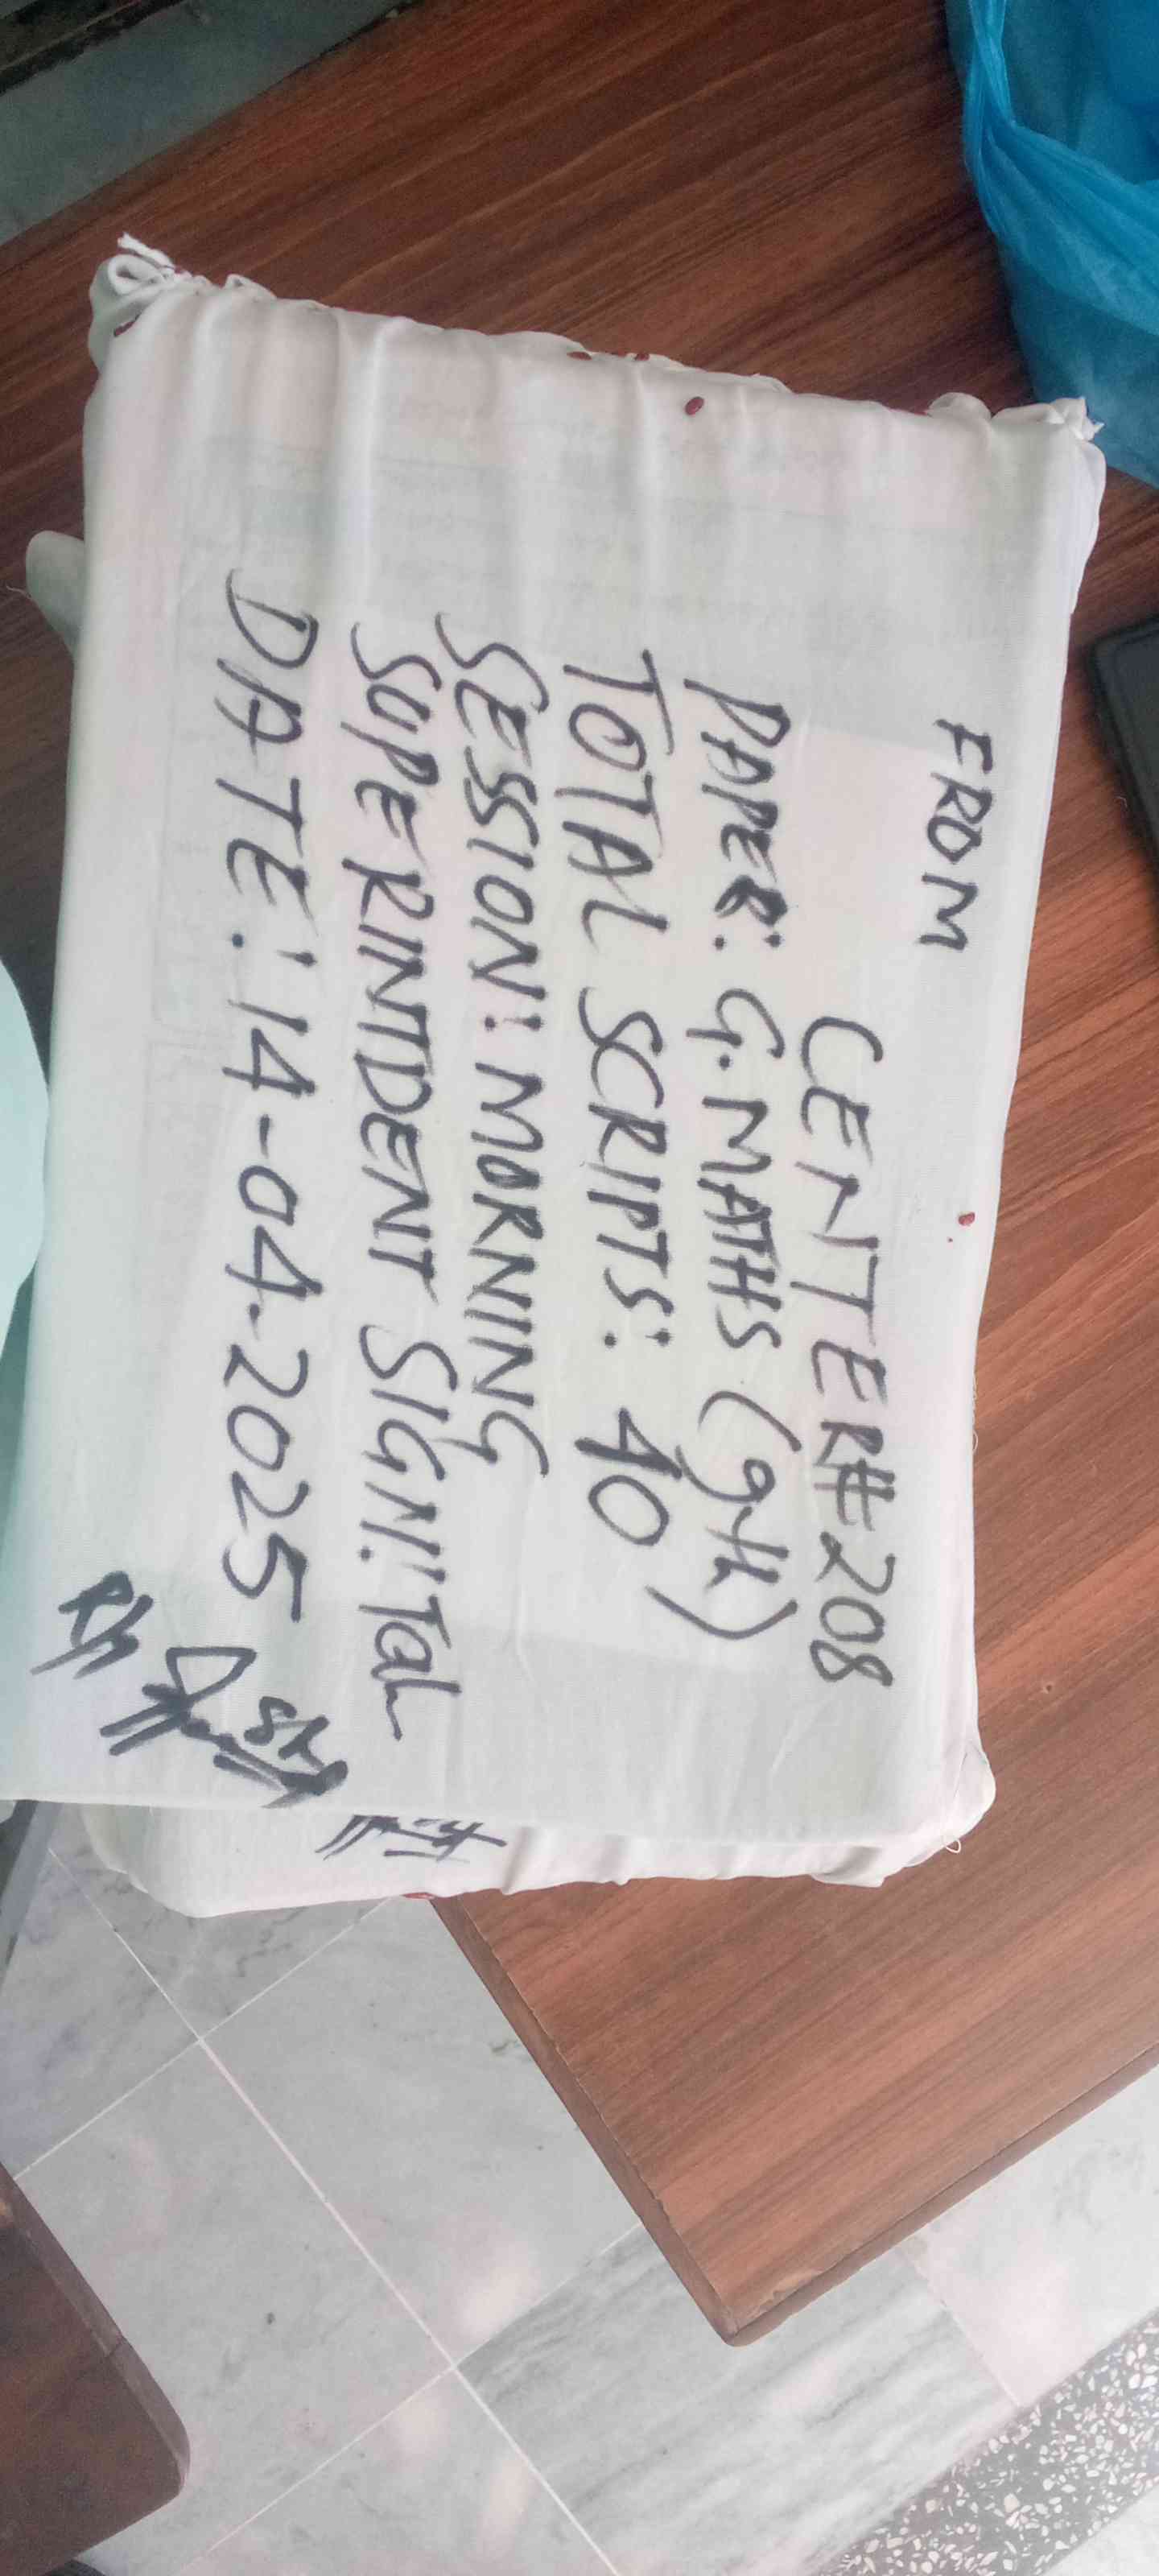 FROM
CENTER#208
PAPER: G.MATHS (9th)
TOTAL SCRIPTS: 40
SESSION: MORNING
SUPERINTDENT SIGN:
DATE: 14-04-2025